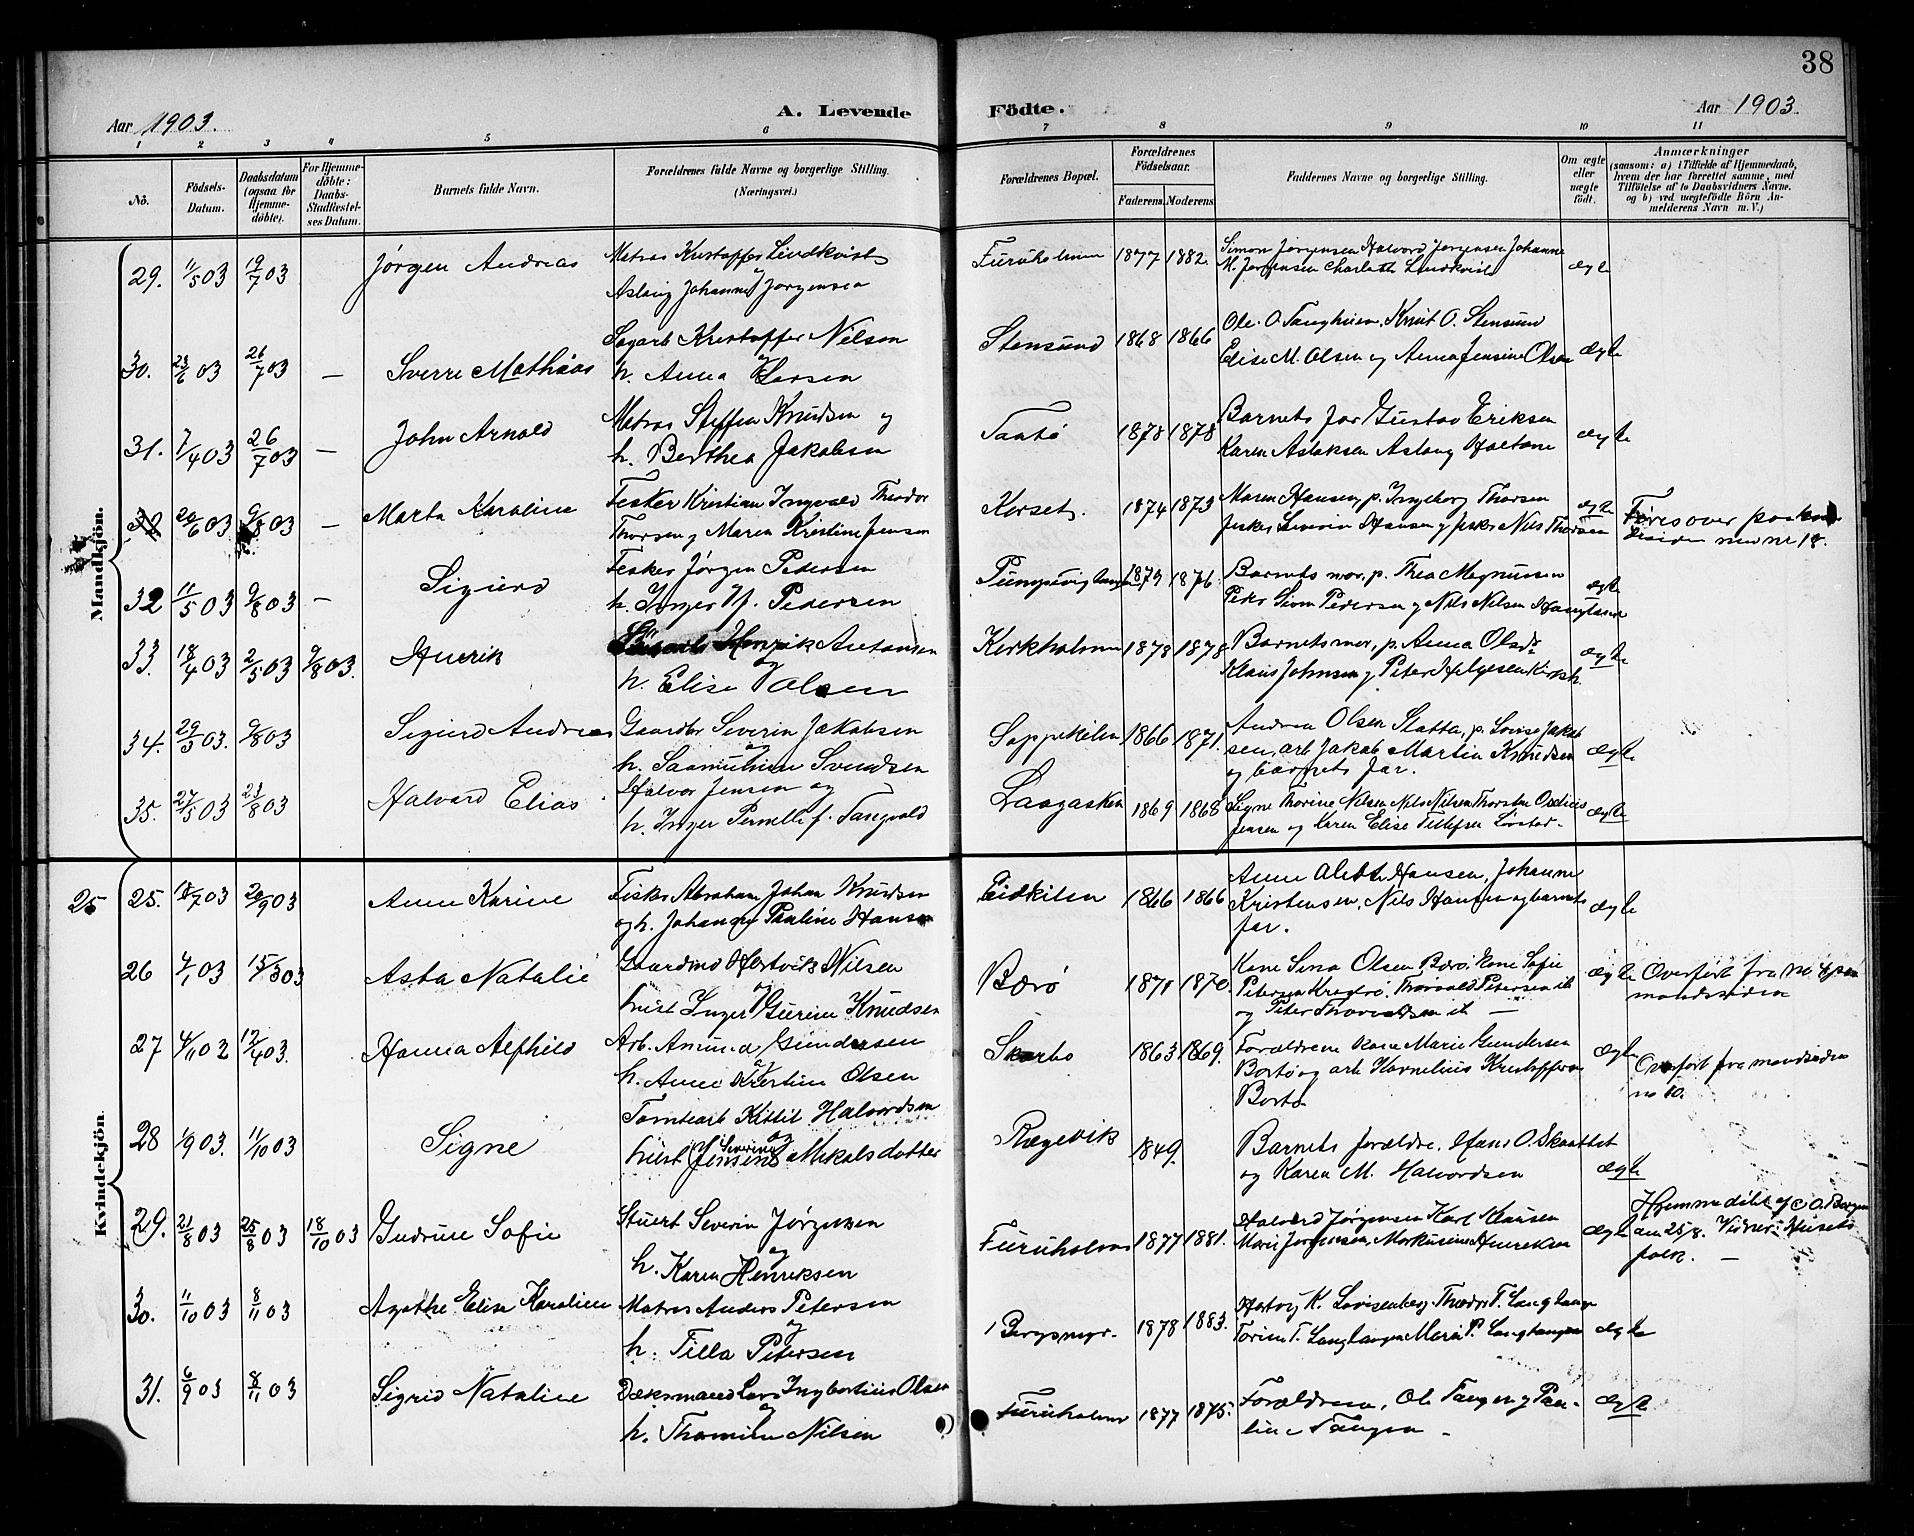 38
Aar 1903.
A. Levende
Födte.
Aar 1903.
1 2 3 4 5 6 7 8 9 10 11
No.
Födsels-Datum.
Daabsdatum (ogsaa for Hjemme-döbte).
For Hjemme-döbte: Daabs-Stadfæstel-ses Datum.
Barnets fulde Navn.
Forældrenes fulde Navne og borgerlige Stilling. (Næringsvei.)
Forældrenes Bopæl.
Forældrenes Födselsaar.
Faderens Moderens
Faddernes Navne og borgerlige Stilling.
Om ægte eller uægte födt.
Anmærkninger
(saasom: a) i Tilfælde af Hjemmedaab,
hvem der har forrettet samme, med
Tilföielse af to Daabsvidners Navne.
og b) ved uægtefödte Börn An-
melderens Navn m. V.)
Mandkjön.
29. 11/5 03 19/7 03 Jørgen Andreas Matros Kristoffer Lindkvist
Aslaug Johanne Jørgensen
Furuholmen 1877 1882 Simon Jørgensen Halvord Jørgensen Johanne
M. Jørgensen Charlotte Lindkvist ægte
30. 26/7 03 — Sverre Mathias Kristoffer Nilsen
og h. Anna Larsen
Stensund 1868 1866 Ole O. Knut O. Stensund
Elise M. Olsen og Anna Jensine Olsen ægte
31. 7/4 03 26/7 03 — John Arnold Matros Steffen Knudsen og
h. Berthea Jakobsen
1878 1878 Barnets far Gustav Eriksen
Karen Aslaksen Aslaug ægte
32 20/6 03 9/8 03 — Marta Karoline Fisker Kristian Ingvald Theodor
Thorsen og Maren Kristine Jensen
Korset 1874 1873 Maren Hansen, p. Ingeborg Thorsen
fisker Severin Hansen og fisker Nils Thorsen ægte
Føres over paa
siden med nr 18.
32 11/5 03 9/8 03 — Sigurd Fisker Jørgen Pedersen
h. Inger H. Pedersen
1873 1876 Barnets mor, p. Thea Magnussen
Sivert Pedersen og Nils Nilsen ægte
33. 18/4 03 2/5 03 9/8 03. Henrik Henrik Antonsen
og h. Elise Olsen
Kirkholmen 1878 1878 Barnets mor, p. Anna Olsdr
Klaus Johnsen og Peter Helgesen Kirkh. ægte
34. 29/5 03. 9/8 03 Sigurd Andreas Gaardbr Severin Jakobsen
og h. Svendsen
Soppekilen 1866 1871. Andrea Olsen Slatta, p. Lovise Jakob
sen, arb Jakob Martin Knudsen
og barnets far. ægte
35. 27/5 03 23/8 03 Halvard Elias Halvor Jensen og
h. Inger Pernelle f. Tangvald
Langaasken 1869 1868 Signe Thorine Nilsen Nils Nilsen
Jensen og Karen Elise Tellefsen ægte
Kvindekjön.
25 25. 18/7 03 20/9 03 Anne Karine Fisker Abraham Johan Knudsen
og h. Johanne Pauline Hansen
Eidkilen 1866 1866 Anne Hansen, Johanne
Kristensen, Nils Hansen og barnets
far. ægte
26 4/1 03 15/3 03 Asta Natalie Hartvik Nilsen
og hust Inger Gurine Knudsen
Borø 1871 1870. Kone Sina Olsen Borø, kone Sofie
Petersen Thorvald Petersen ib
og Peter ib — ægte Overført fra no 4 paa
mandssiden
27 4/11 02 12/4 03. Hanna Alfhild Arb. Amund Gundersen
og h. Anne Kristine Olsen
Skarbo 1863 1869. Forældrene kone Marie Gundersen
Bortø og arb Kornelius Kristoffersen
Bortø ægte Overført fra mandsiden
no 10.
28 1/9 03. 11/10 03 Signe Tomtearb Kittil Halvordsen
og hust (Severine) Jensine Mikalsdatter
Rægevik 1849. Barnets forældre, Hans O. Skaattet
og Karen M. Halvordsen ægte
29. 21/8 03 25/8 03 18/10 03 Gudrun Sofie Stuert Severin Jørgensen
og h. Karen Henriksen
Furuholmen 1877 1881. Halvord Jørgensen Karl Klausen
Marie Jørgensen, Markusine Henriksen ægte
Hjemmedøbt af C. O. Bergen
den 25/8. Vidner: Husets
folk. —
30. 11/10 03 8/11 03 Agathe Elise Karoline Matros Anders Petersen
og h. Tilla Petersen
Bergsmyr. 1878 1883. Hartvig K. Lovisenberg Theodor T. Langtangen
Torine T. Langtangen Marie P. Langtangen ægte
31. 6/9 03 8/11 03 Sigrid Natalie Dæksmand Lars Ingbertinius Olsen
og h. Thomine Nilsen
Furuholmen 1877 1875. Forældrene, Ole Tangen og Pau-
line Tangen ægte